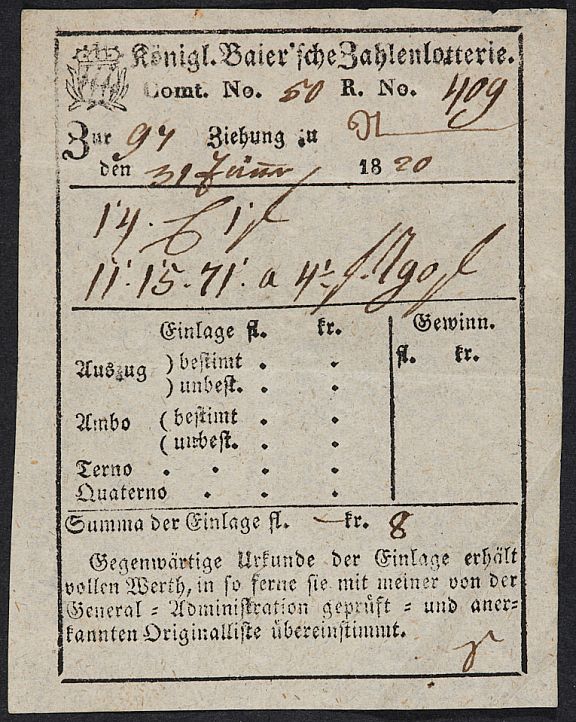 Königl. Baier'sche Zahlenlotterie.
Comt. No. 50 R. No. 409
Zur 97 Ziehung zu N
den 31 1820
14.
11. 15. 71. a
Einlage fl. kr. Gewinn.
fl. kr.
Auszug ) bestimt . .
) unbest. . .
Ambo ( bestimt . .
( unbest. . .
Terno . . . .
Quaterno . . .
Summa der Einlage fl. — kr. 8
Gegenwärtige Urkunde der Einlage erhält
vollen Werth, in so ferne sie mit meiner von der
General = Administration geprüft = und aner-
kannten Originalliste übereinstimmt.